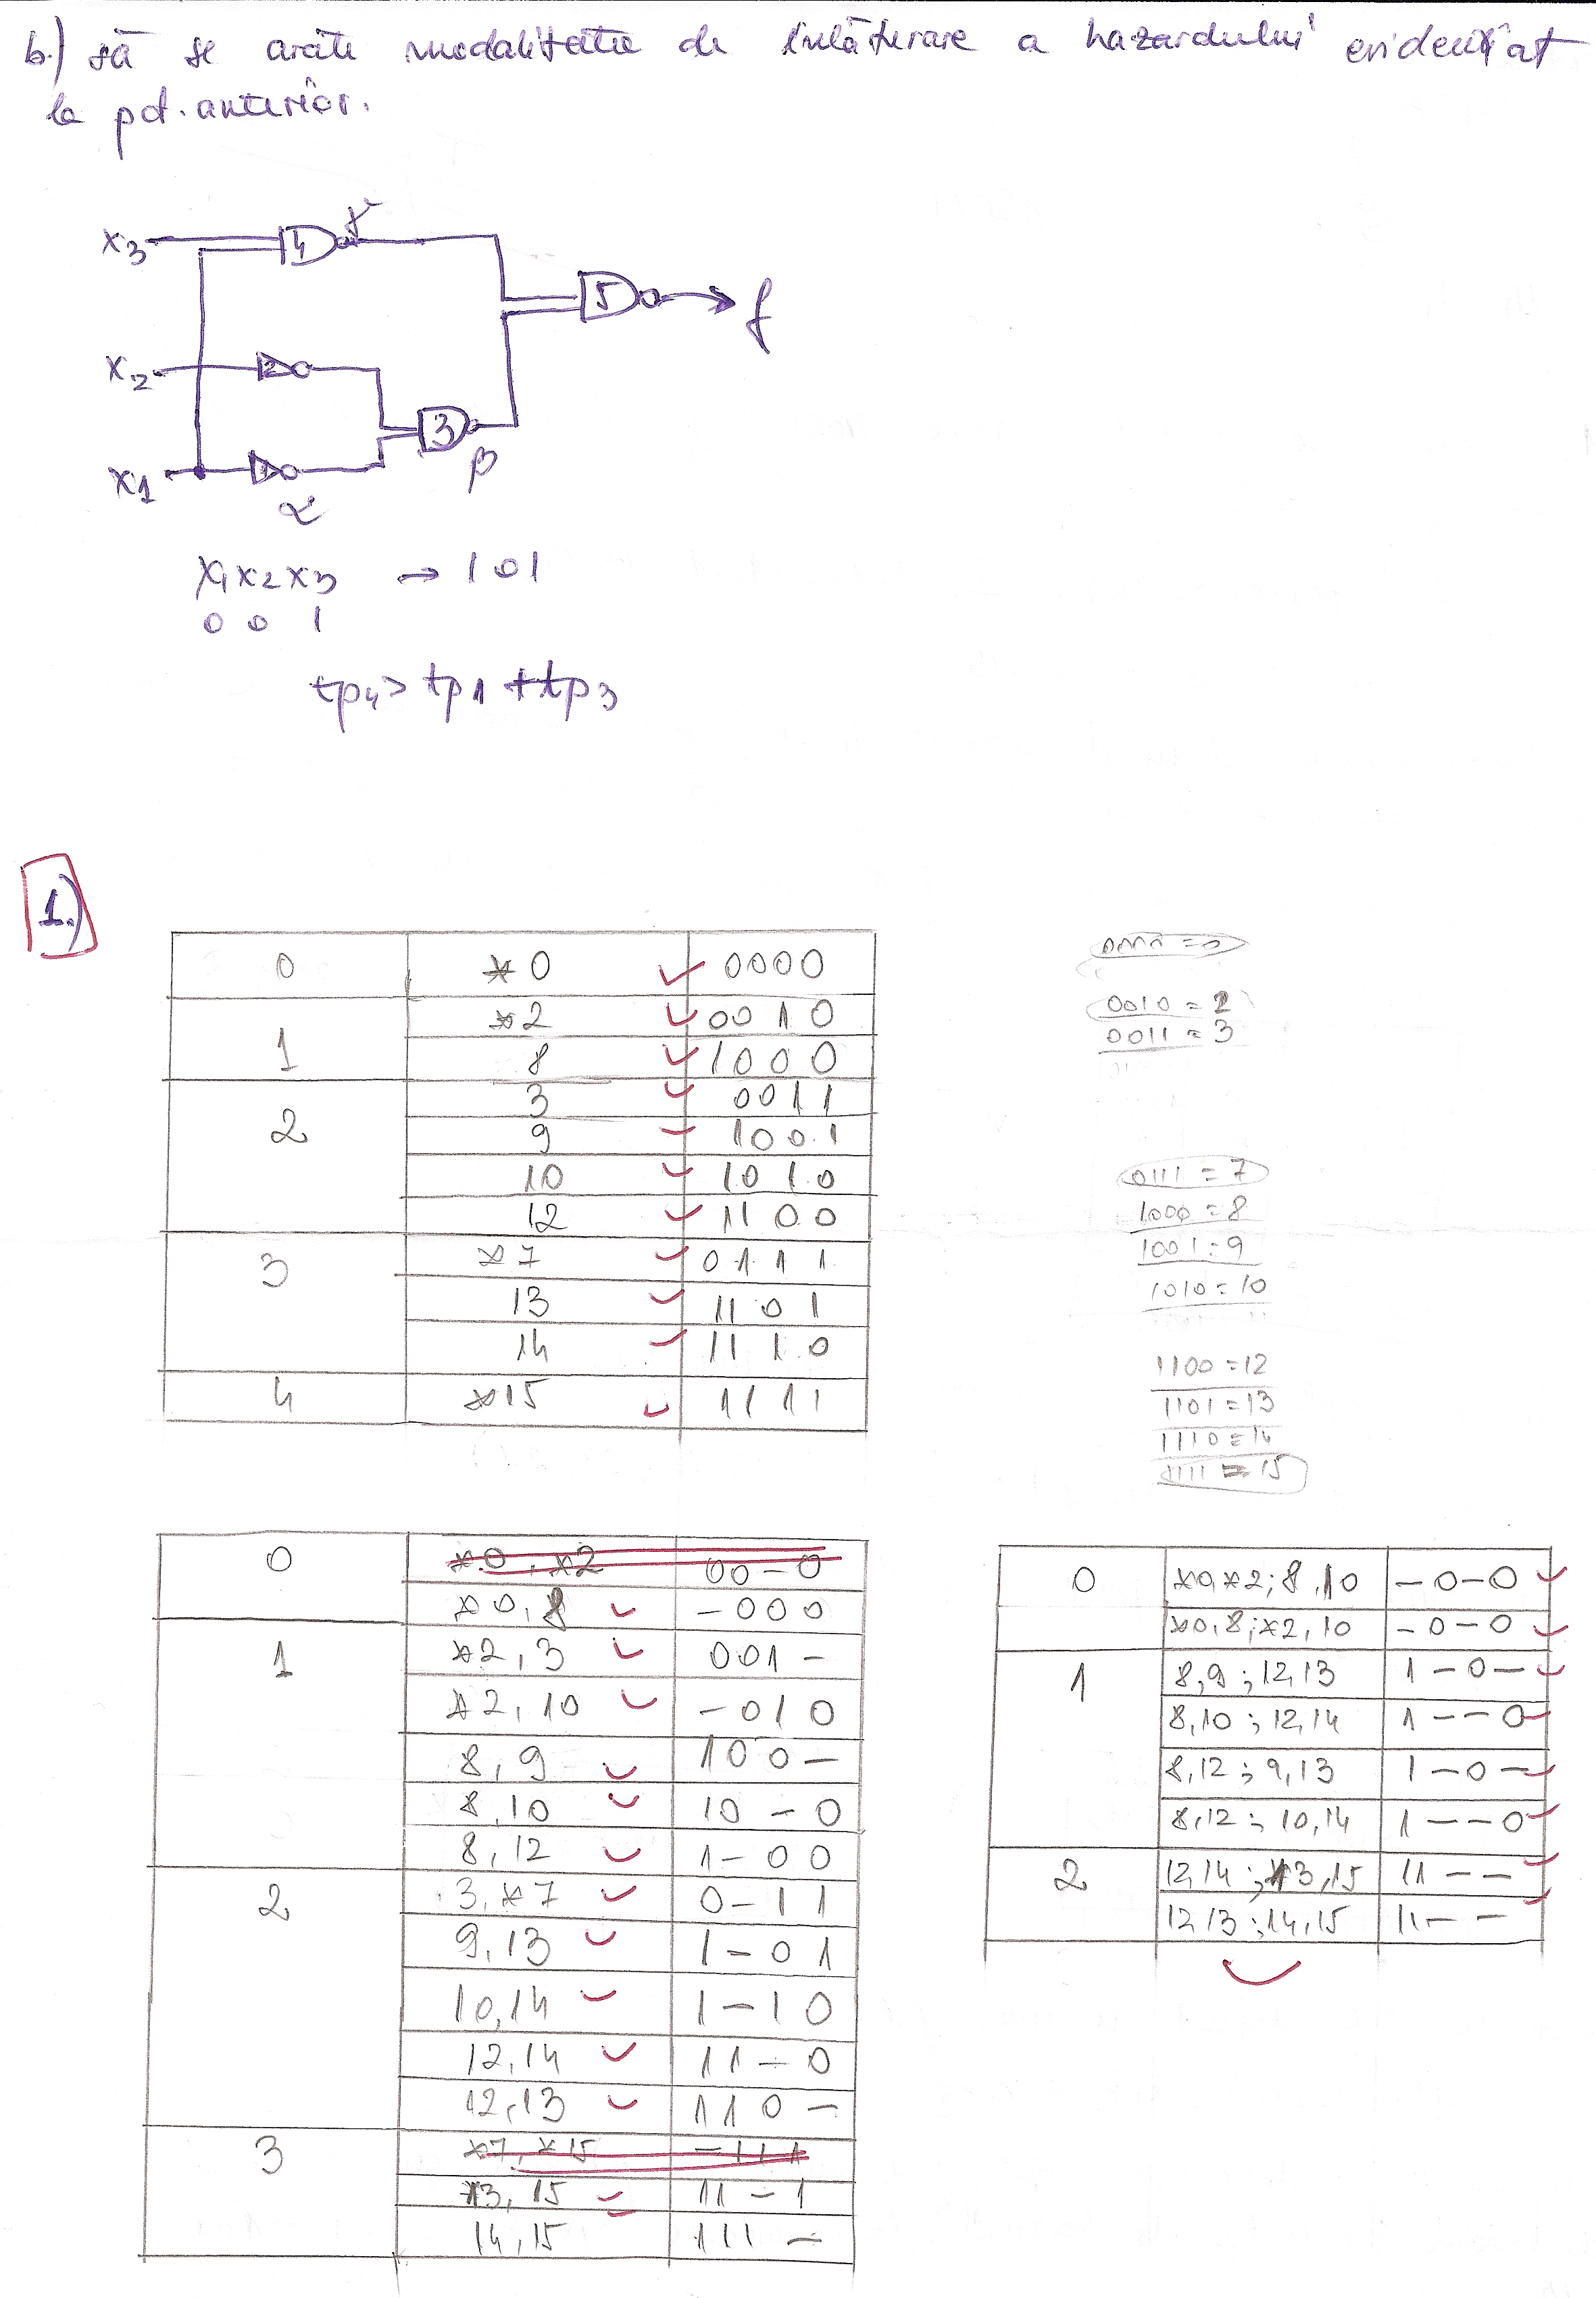 b.) să se arate modalitatea de înlăturare a hazardului evidențiat
la pct. anterior.
x3 4 γ
5 f
x2 2
3
x1 1 β
α
x1x2x3 → 101
0 0 1
tp4> tp1 + tp3
1.)
0 *0 0000
*2 0010
1 8 1000
3 0011
2 9 1001
10 1010
12 1100
3 *7 0111
13 1101
14 1110
4 *15 1111
0000 = 0
0010 = 2
0011 = 3
0111 = 7
1000 = 8
1001 = 9
1010 = 10
1100 = 12
1101 = 13
1110 = 14
1111 = 15
0 *0, *2 00-0
*0, 8 -000
1 *2, 3 001-
*2, 10 -010
8, 9 100-
8, 10 10-0
8, 12 1-00
2 3, *7 0-11
9, 13 1-01
10, 14 1-10
12, 14 11-0
12, 13 110-
3 *7, *15 -111
13, 15 11-1
14, 15 111-
0 *0, *2; 8, 10 -0-0
*0, 8; *2, 10 -0-0
1 8, 9; 12, 13 1-0-
8, 10; 12, 14 1--0
8, 12; 9, 13 1-0-
8, 12; 10, 14 1--0
2 12, 14; 13, 15 11--
12, 13; 14, 15 11--